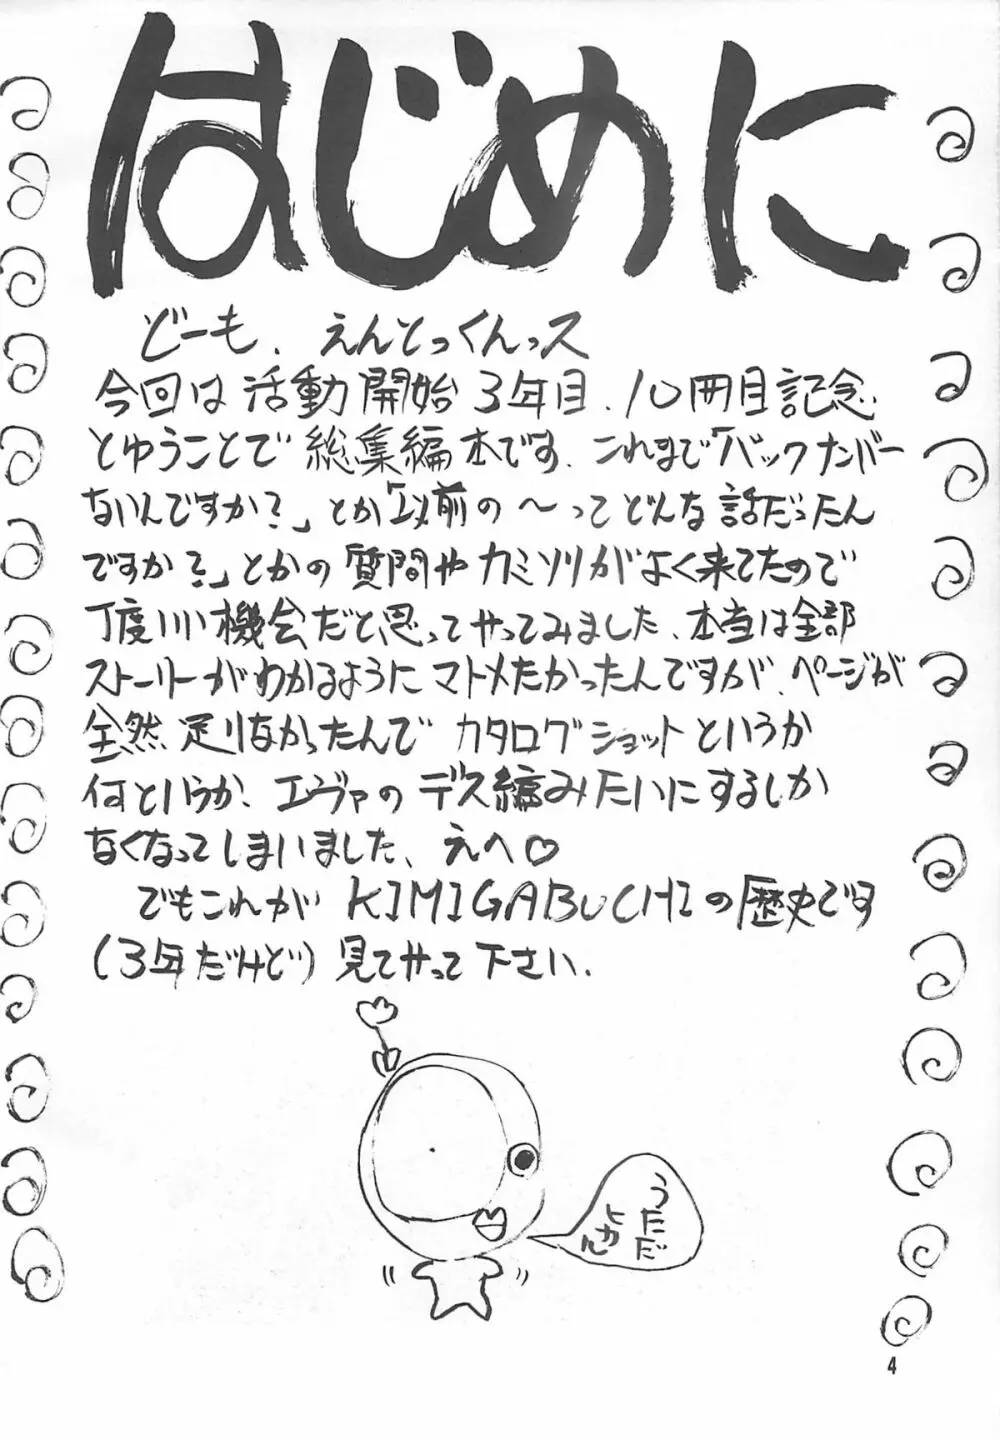 はじめに
どーも、えんとっくんっス
今回は活動開始3年目、10冊目記念
とゆうことで総集編本です。これまで「バックナンバー
ないんですか?」とか「以前の〜ってどんな話だったん
ですか?」とかの質問やカミソリがよく来てたので
丁度いい機会だと思ってやってみました、本当は全部
ストーリーがわかるようにマトメたかったんですが、ページが
全然足りなかったんでカタログショットというか
何というか、エヴァのデス編みたいにするしか
なくなってしまいました、えへ♡
でもこれがKIMIGABUCHIの歴史です
(3年だけど)見てやって下さい.
うただ
ヒカル
4